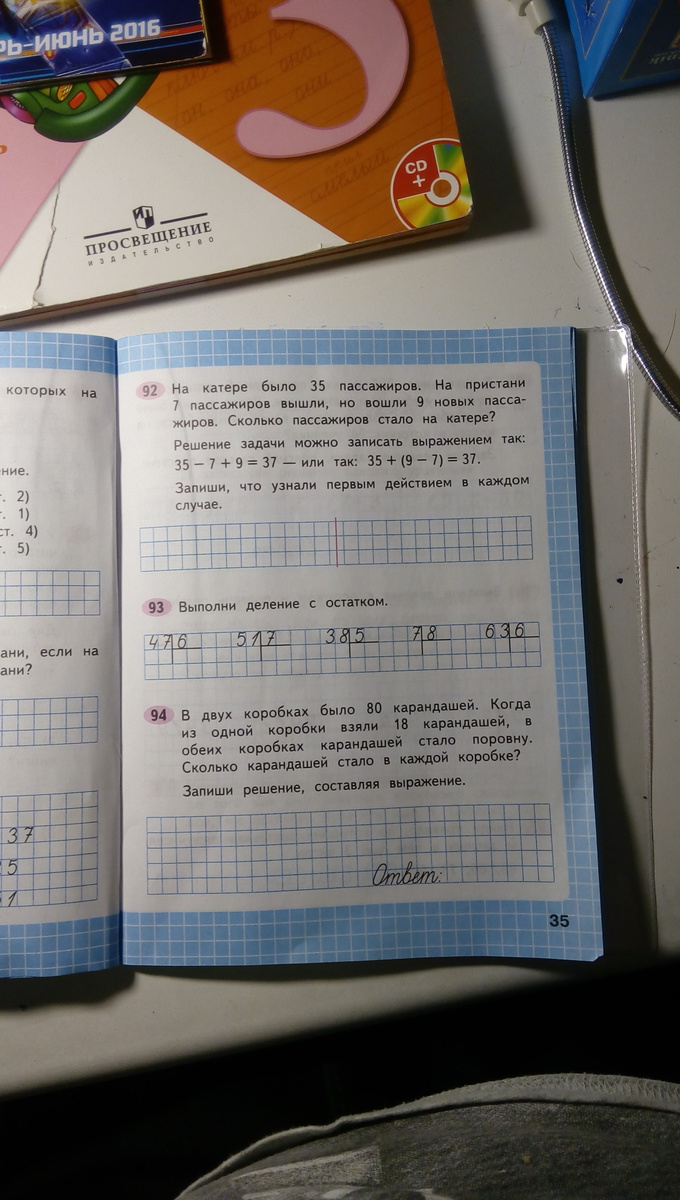 РЬ-ИЮНЬ 2016
CD
+
ПРОСВЕЩЕНИЕ
ИЗДАТЕЛЬСТВО
которых на
ние.
т. 2)
т. 1)
ст. 4)
т. 5)
ани, если на
ани?
37
5
1
92 На катере было 35 пассажиров. На пристани
7 пассажиров вышли, но вошли 9 новых пасса-
жиров. Сколько пассажиров стало на катере?
Решение задачи можно записать выражением так:
35 − 7 + 9 = 37 — или так: 35 + (9 − 7) = 37.
Запиши, что узнали первым действием в каждом
случае.
93 Выполни деление с остатком.
47|6 51|7 38|5 7|8 63|6
94 В двух коробках было 80 карандашей. Когда
из одной коробки взяли 18 карандашей, в
обеих коробках карандашей стало поровну.
Сколько карандашей стало в каждой коробке?
Запиши решение, составляя выражение.
Ответ:
35